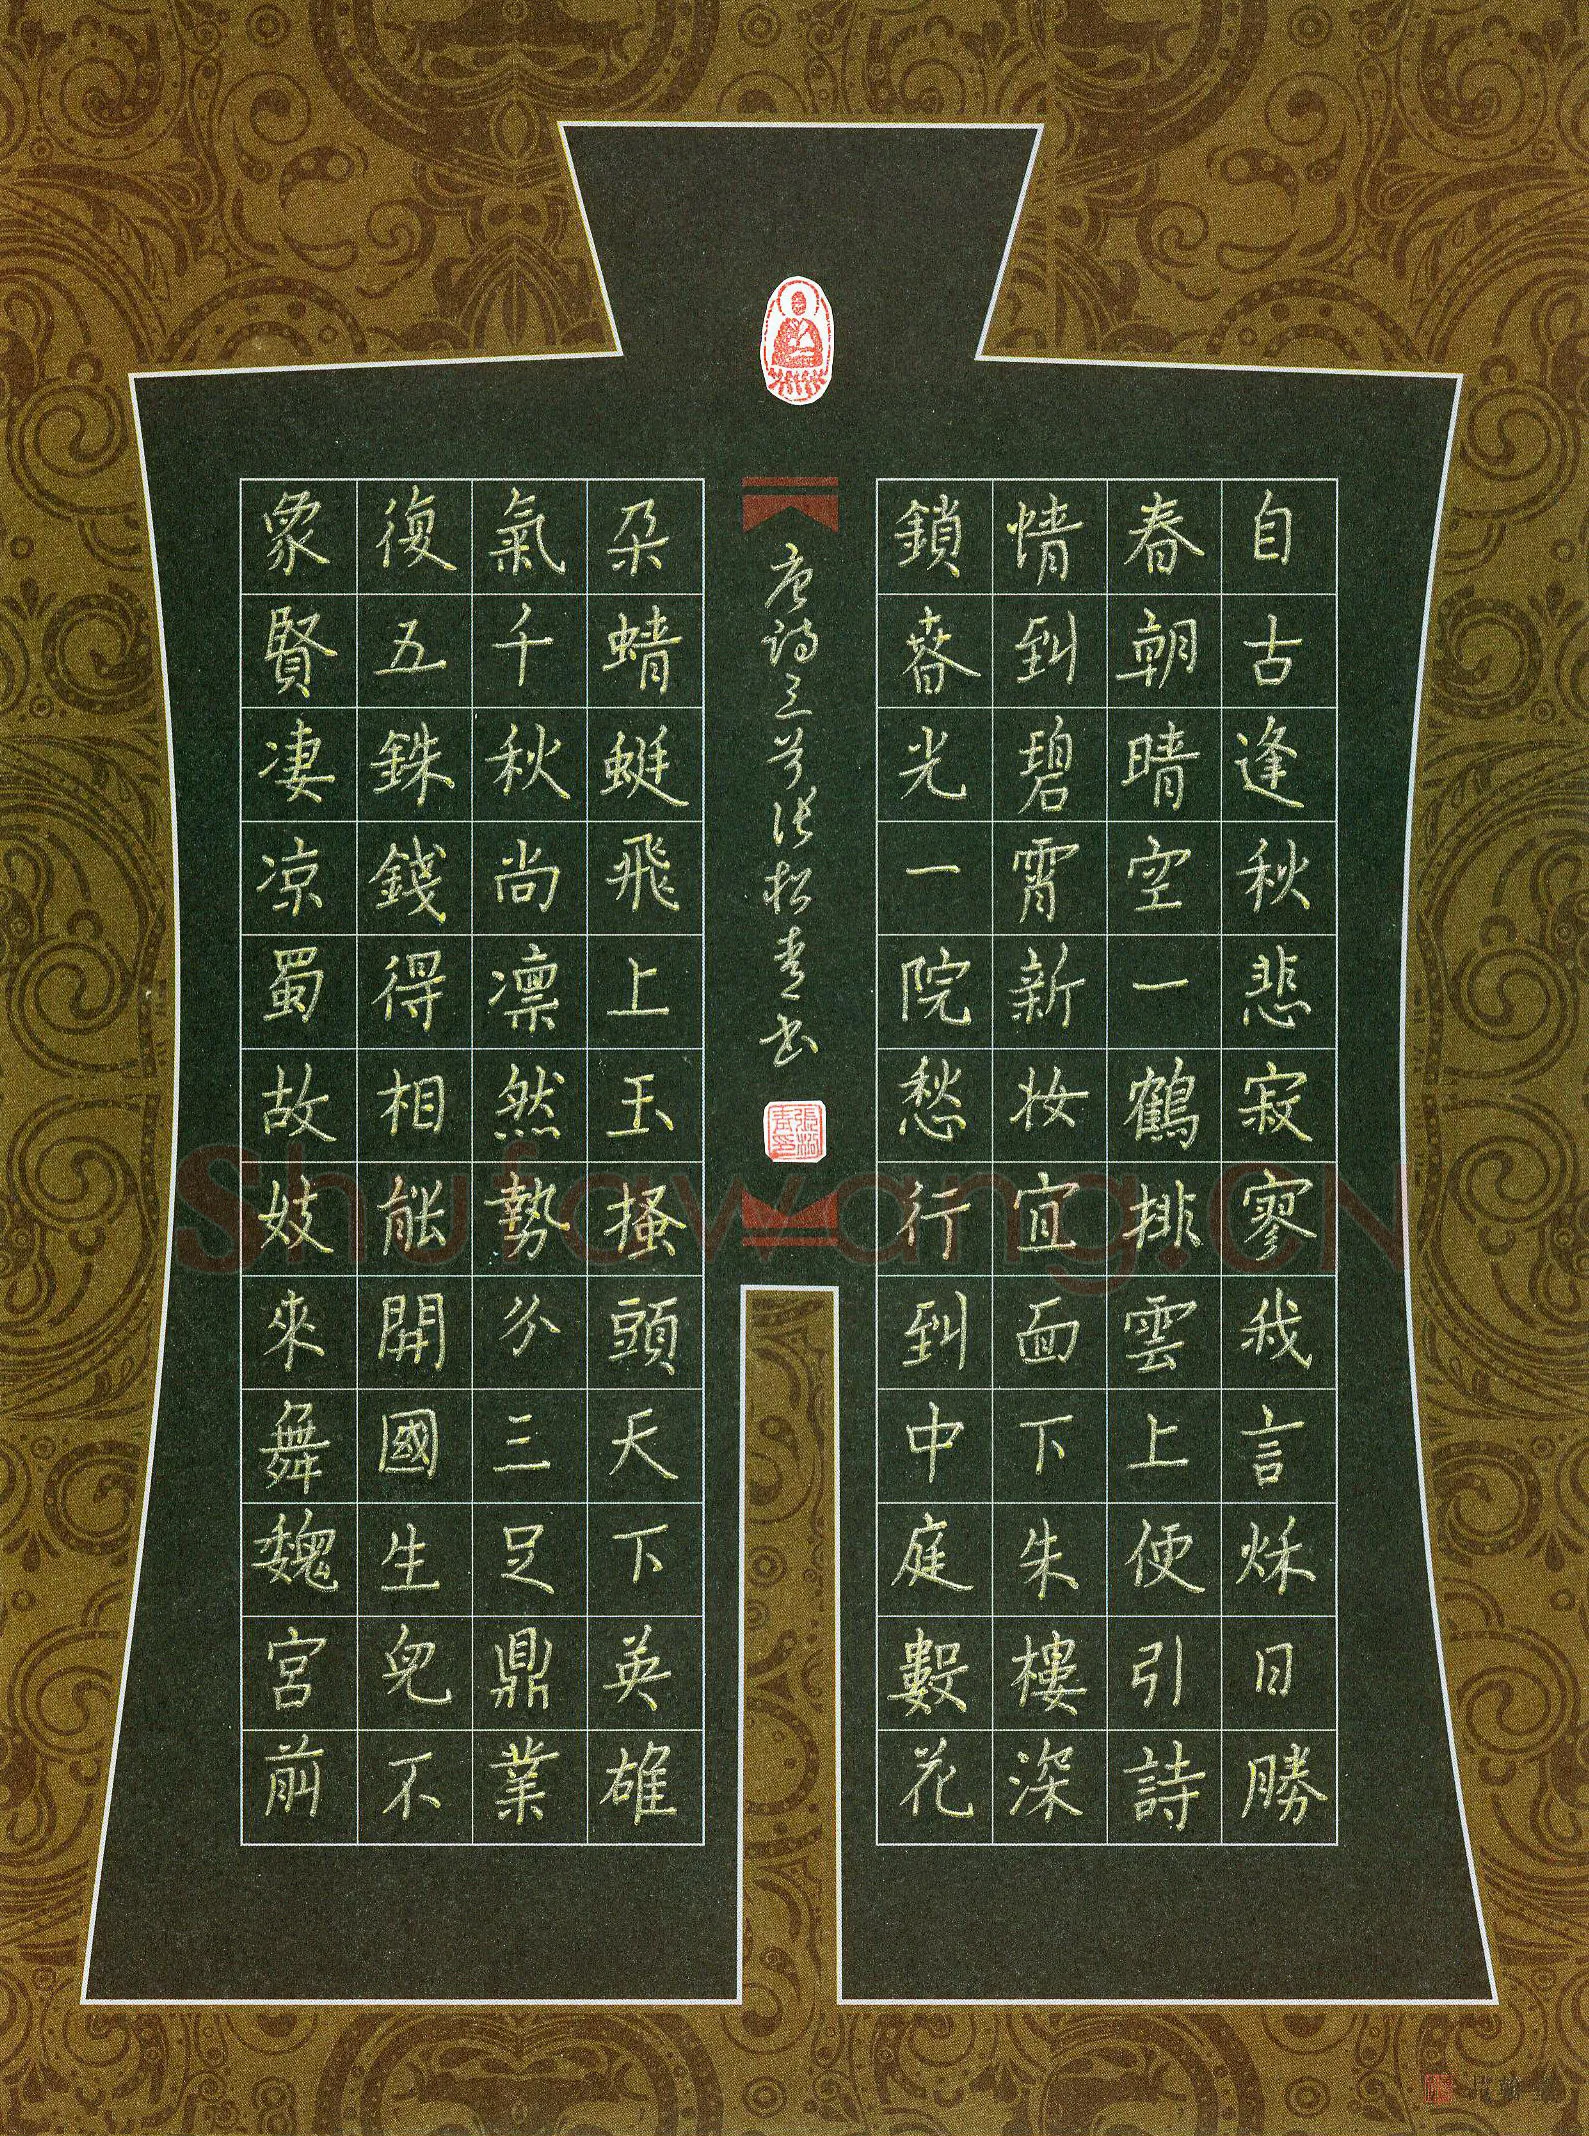 自古逢秋悲寂寥我言秌日勝
春朝晴空一鶴排雲上便引詩
情到碧霄新妆宜面下朱樓深
鎖春光一院愁行到中庭數花
唐诗三首张松青书
張松青印
朵蜻蜓飛上玉搔頭天下英雄
氣千秋尚凛然勢分三足鼎業
復五銖錢得相能開國生兒不
象賢凄凉蜀故妓來舞魏宮前
Shufawang.CN